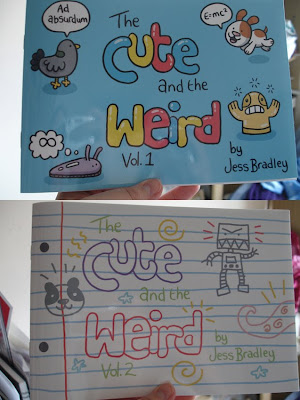 Ad
absurdum
The
E=mc²
Cute
and the
Weird
Vol. 1
by
Jess Bradley
The
Cute
and the
Weird
Vol. 2
by
Jess Bradley